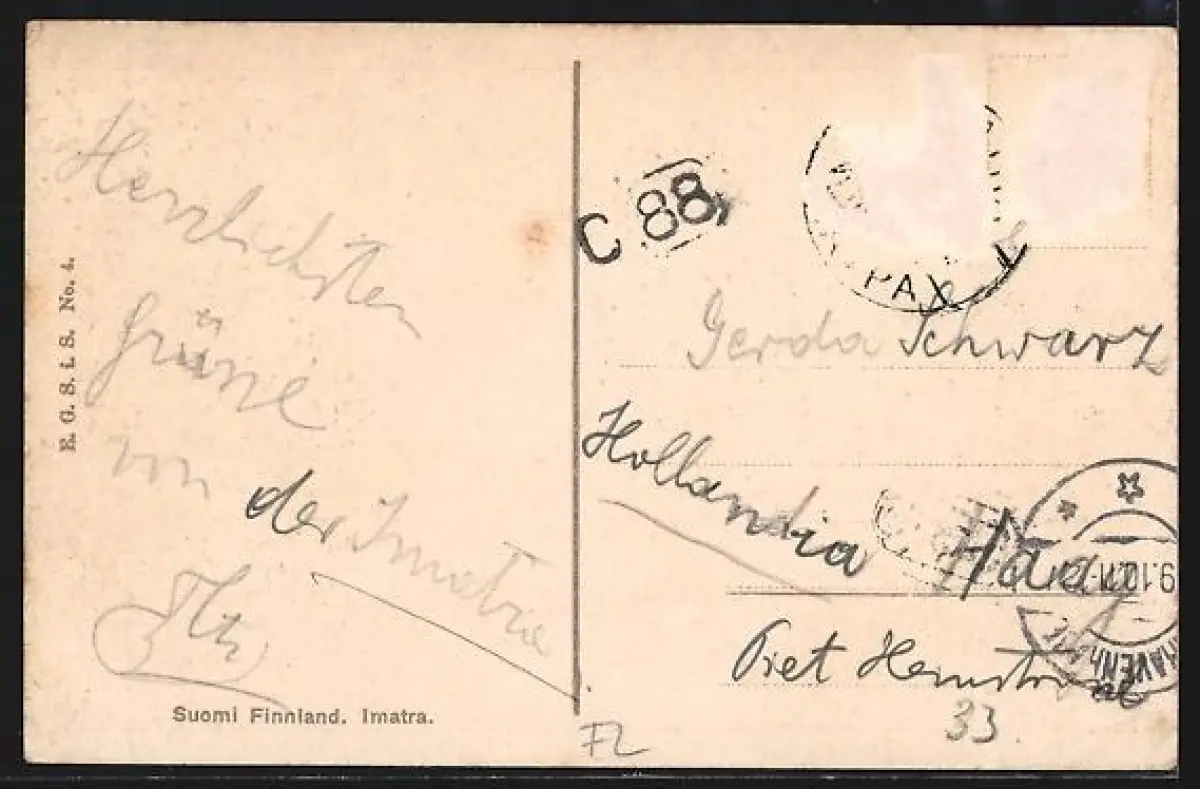 Herzlichsten
Grüsse
von der Imatra
E. G. S. i. S. No. 4.
Suomi Finnland. Imatra.
C 88
PAX
Gerda Schwarz
Hollandia
Haag
Piet
33
FL
9.10.11
HAVEN